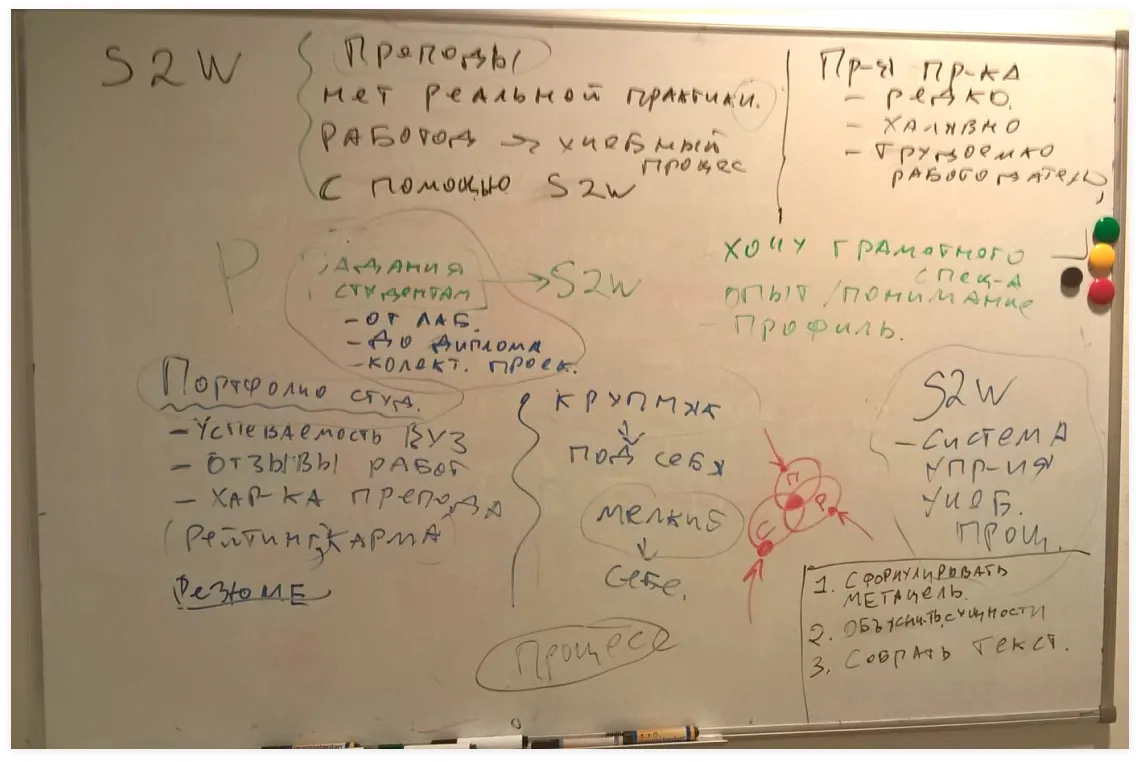 S2W
Преподы
нет реальной практики.
работод → учебный
процес
с помощью S2W
Пр-я пр-ка
- редко.
- халявно
- трудоемко
работодателю
Р
задания
студентам
→ S2W
- от лаб.
- до диплома
- колект. проек.
хочу грамотного
спец-а
опыт/понимание
- профиль.
Портфолио студ.
- Успеваемость ВУЗ
- отзывы работ
- хар-ка препода
(Рейтинг, карма)
Резюме
крупняк
под себя
мелкие
себе.
П
Р
С
S2W
- система
упр-ия
учеб.
проц.
1. сформулировать
метацель.
2. объяснить сущности
3. собрать текст.
процесс